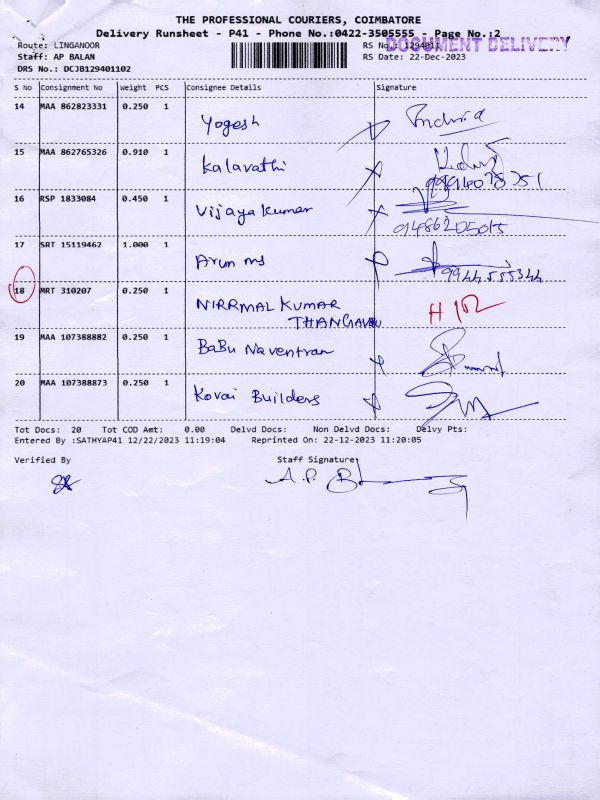 THE PROFESSIONAL COURIERS, COIMBATORE
Delivery Runsheet - P41 - Phone No.:0422-3505555 - Page No.:2
Route: LINGANOOR
RS No.: 1294011
DOCUMENT DELIVERY
Staff: AP BALAN
RS Date: 22-Dec-2023
DRS No.: DCJB129401102
S No Consignment No Weight PCS Consignee Details Signature
14 MAA 862823331 0.250 1 Yogesh
15 MAA 862765326 0.910 1 Kalavathi
16 RSP 1833084 0.450 1 Vijaya Kumar
17 SRT 15119462 1.000 1 Arun ms
9944555344
18 MRT 310207 0.250 1 NIRRMAL KUMAR
THANGAVELU
19 MAA 107388882 0.250 1 BaBu Naventran
20 MAA 107388873 0.250 1 Kovai Builders
Tot Docs: 20 Tot COD Amt: 0.00 Delvd Docs: Non Delvd Docs: Delvy Pts:
Entered By :SATHYAP41 12/22/2023 11:19:04 Reprinted On: 22-12-2023 11:20:05
Verified By Staff Signature
A.P. B